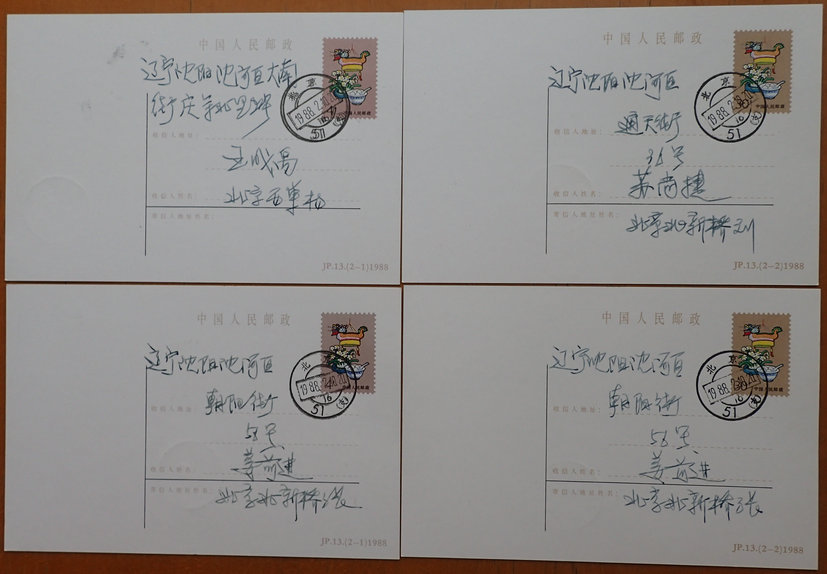 中国人民邮政
辽宁沈阳沈河区大南
街
收信人地址:
收信人姓名:
北京西单
寄信人地址姓名:
中国人民邮政
北京
1988.2.10.20
16
51(支)
JP.13.(2-1)1988
中国人民邮政
辽宁沈阳沈河区
收信人地址:
通天街
38号
收信人姓名:
苏尚捷
寄信人地址姓名:
北京北新桥
中国人民邮政
北京
1988.2.10.20
16
51(支)
JP.13.(2-2)1988
中国人民邮政
辽宁沈阳沈河区
收信人地址:
朝阳街
58号
收信人姓名:
姜前进
寄信人地址姓名:
北京北新桥张
中国人民邮政
北京
1988.2.10.20
16
51(支)
JP.13.(2-1)1988
中国人民邮政
辽宁沈阳沈河区
收信人地址:
朝阳街
58号
收信人姓名:
姜前进
寄信人地址姓名:
北京北新桥张
中国人民邮政
北京
1988.2.10.20
16
51(支)
JP.13.(2-2)1988